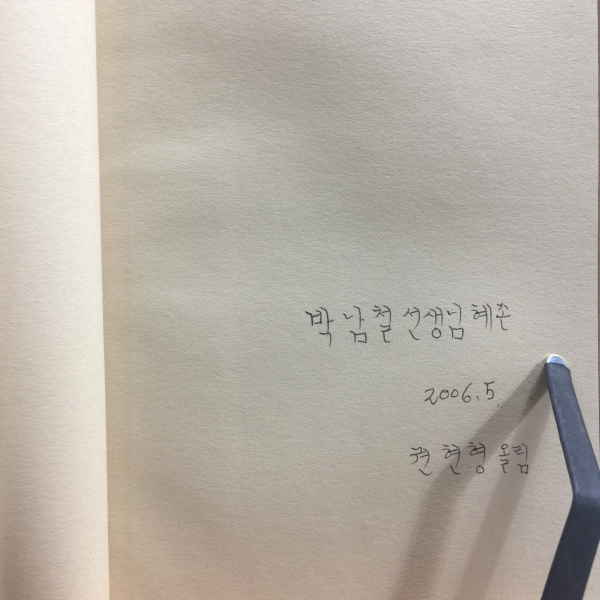 박남철 선생님 혜존
2006. 5.
권현형 올림